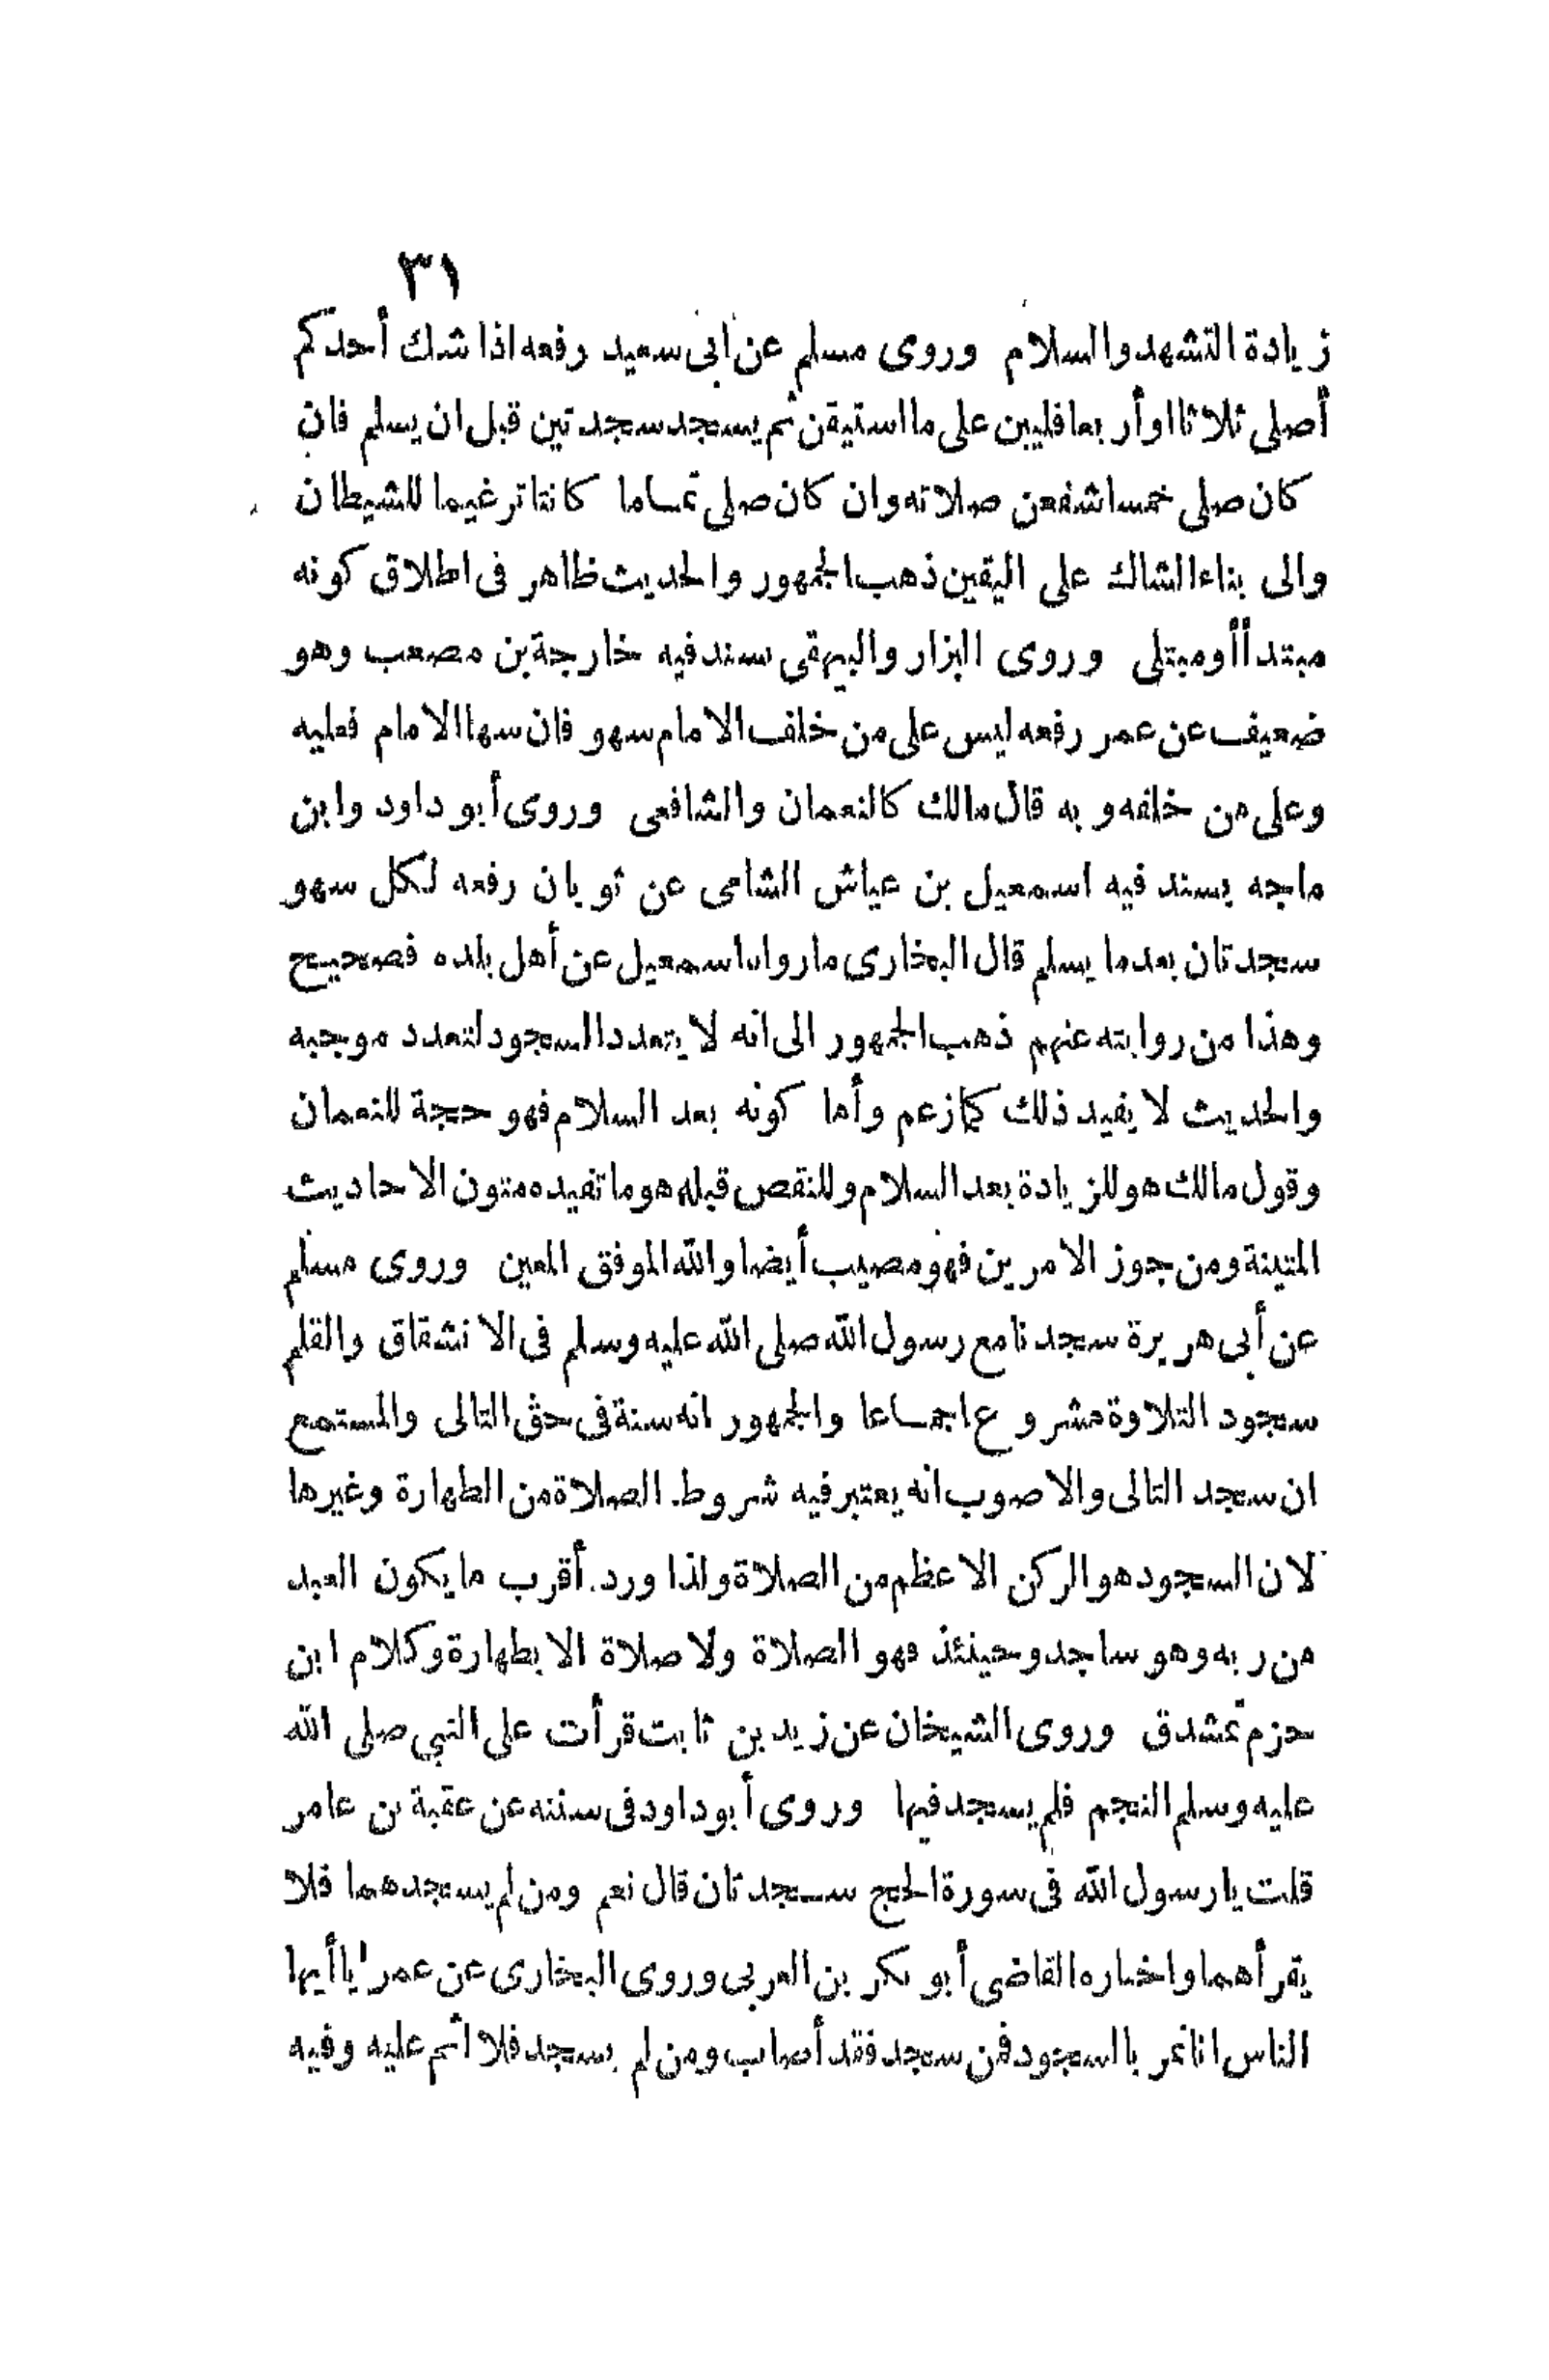 ٣١
زيادة التشهد والسلام وروى مسلم عن أبى سعيد رفعه اذا شك أحدكم
أصلى ثلاثا اوأربعا فليبن على ما استيقن ثم يسجد سجدتين قبل ان يسلم فان
كان صلى خمسا شفعن صلاته وان كان صلى تماما كانتا ترغيما للشيطان
والى بناء الشاك على اليقين ذهب الجمهور والحديث ظاهر فى اطلاق كونه
مبتدأ أومبتلى وروى البزار والبيهقى سند فيه خارجة بن مصعب وهو
ضعيف عن عمر رفعه ليس على من خلف الامام سهو فان سها الامام فعليه
وعلى من خلفه وبه قال مالك كالنعمان والشافعى وروى أبو داود وابن
ماجه بسند فيه اسمعيل بن عياش الشامى عن ثوبان رفعه لكل سهو
سجدتان بعدما يسلم قال البخارى ما رواه اسمعيل عن أهل بلده فصحيح
وهذا من روايته عنهم ذهب الجمهور الى انه لا يتعدد السجود لتعدد موجبه
والحديث لا يفيد ذلك كمازعم وأما كونه بعد السلام فهو حجة للنعمان
وقول مالك هو للزيادة بعد السلام وللنقص قبله هو ما تفيده متون الاحاديث
المتينة ومن جوز الامرين فهو مصيب أيضا والله الموفق المعين وروى مسلم
عن أبى هريرة سجدنا مع رسول الله صلى الله عليه وسلم فى الانشقاق والقلم
سجود التلاوة مشروع اجماعا والجمهور انه سنة فى حق التالى والمستمع
ان سجد التالى والاصوب انه يعتبر فيه شروط الصلاة من الطهارة وغيرها
لان السجود هو الركن الاعظم من الصلاة ولذا ورد أقرب ما يكون العبد
من ربه وهو ساجد وحينئذ فهو الصلاة ولا صلاة الا بطهارة وكلام ابن
حزم تمشدق وروى الشيخان عن زيد بن ثابت قرأت على النبى صلى الله
عليه وسلم النجم فلم يسجد فيها وروى أبو داود فى سننه عن عقبة بن عامر
قلت يا رسول الله فى سورة الحج سجدتان قال نعم ومن لم يسجدهما فلا
يقرأهما واختاره القاضى أبو بكر بن العربى وروى البخارى عن عمر يا أيها
الناس انا نمر بالسجود فمن سجد فقد أصاب ومن لم يسجد فلا اثم عليه وفيه